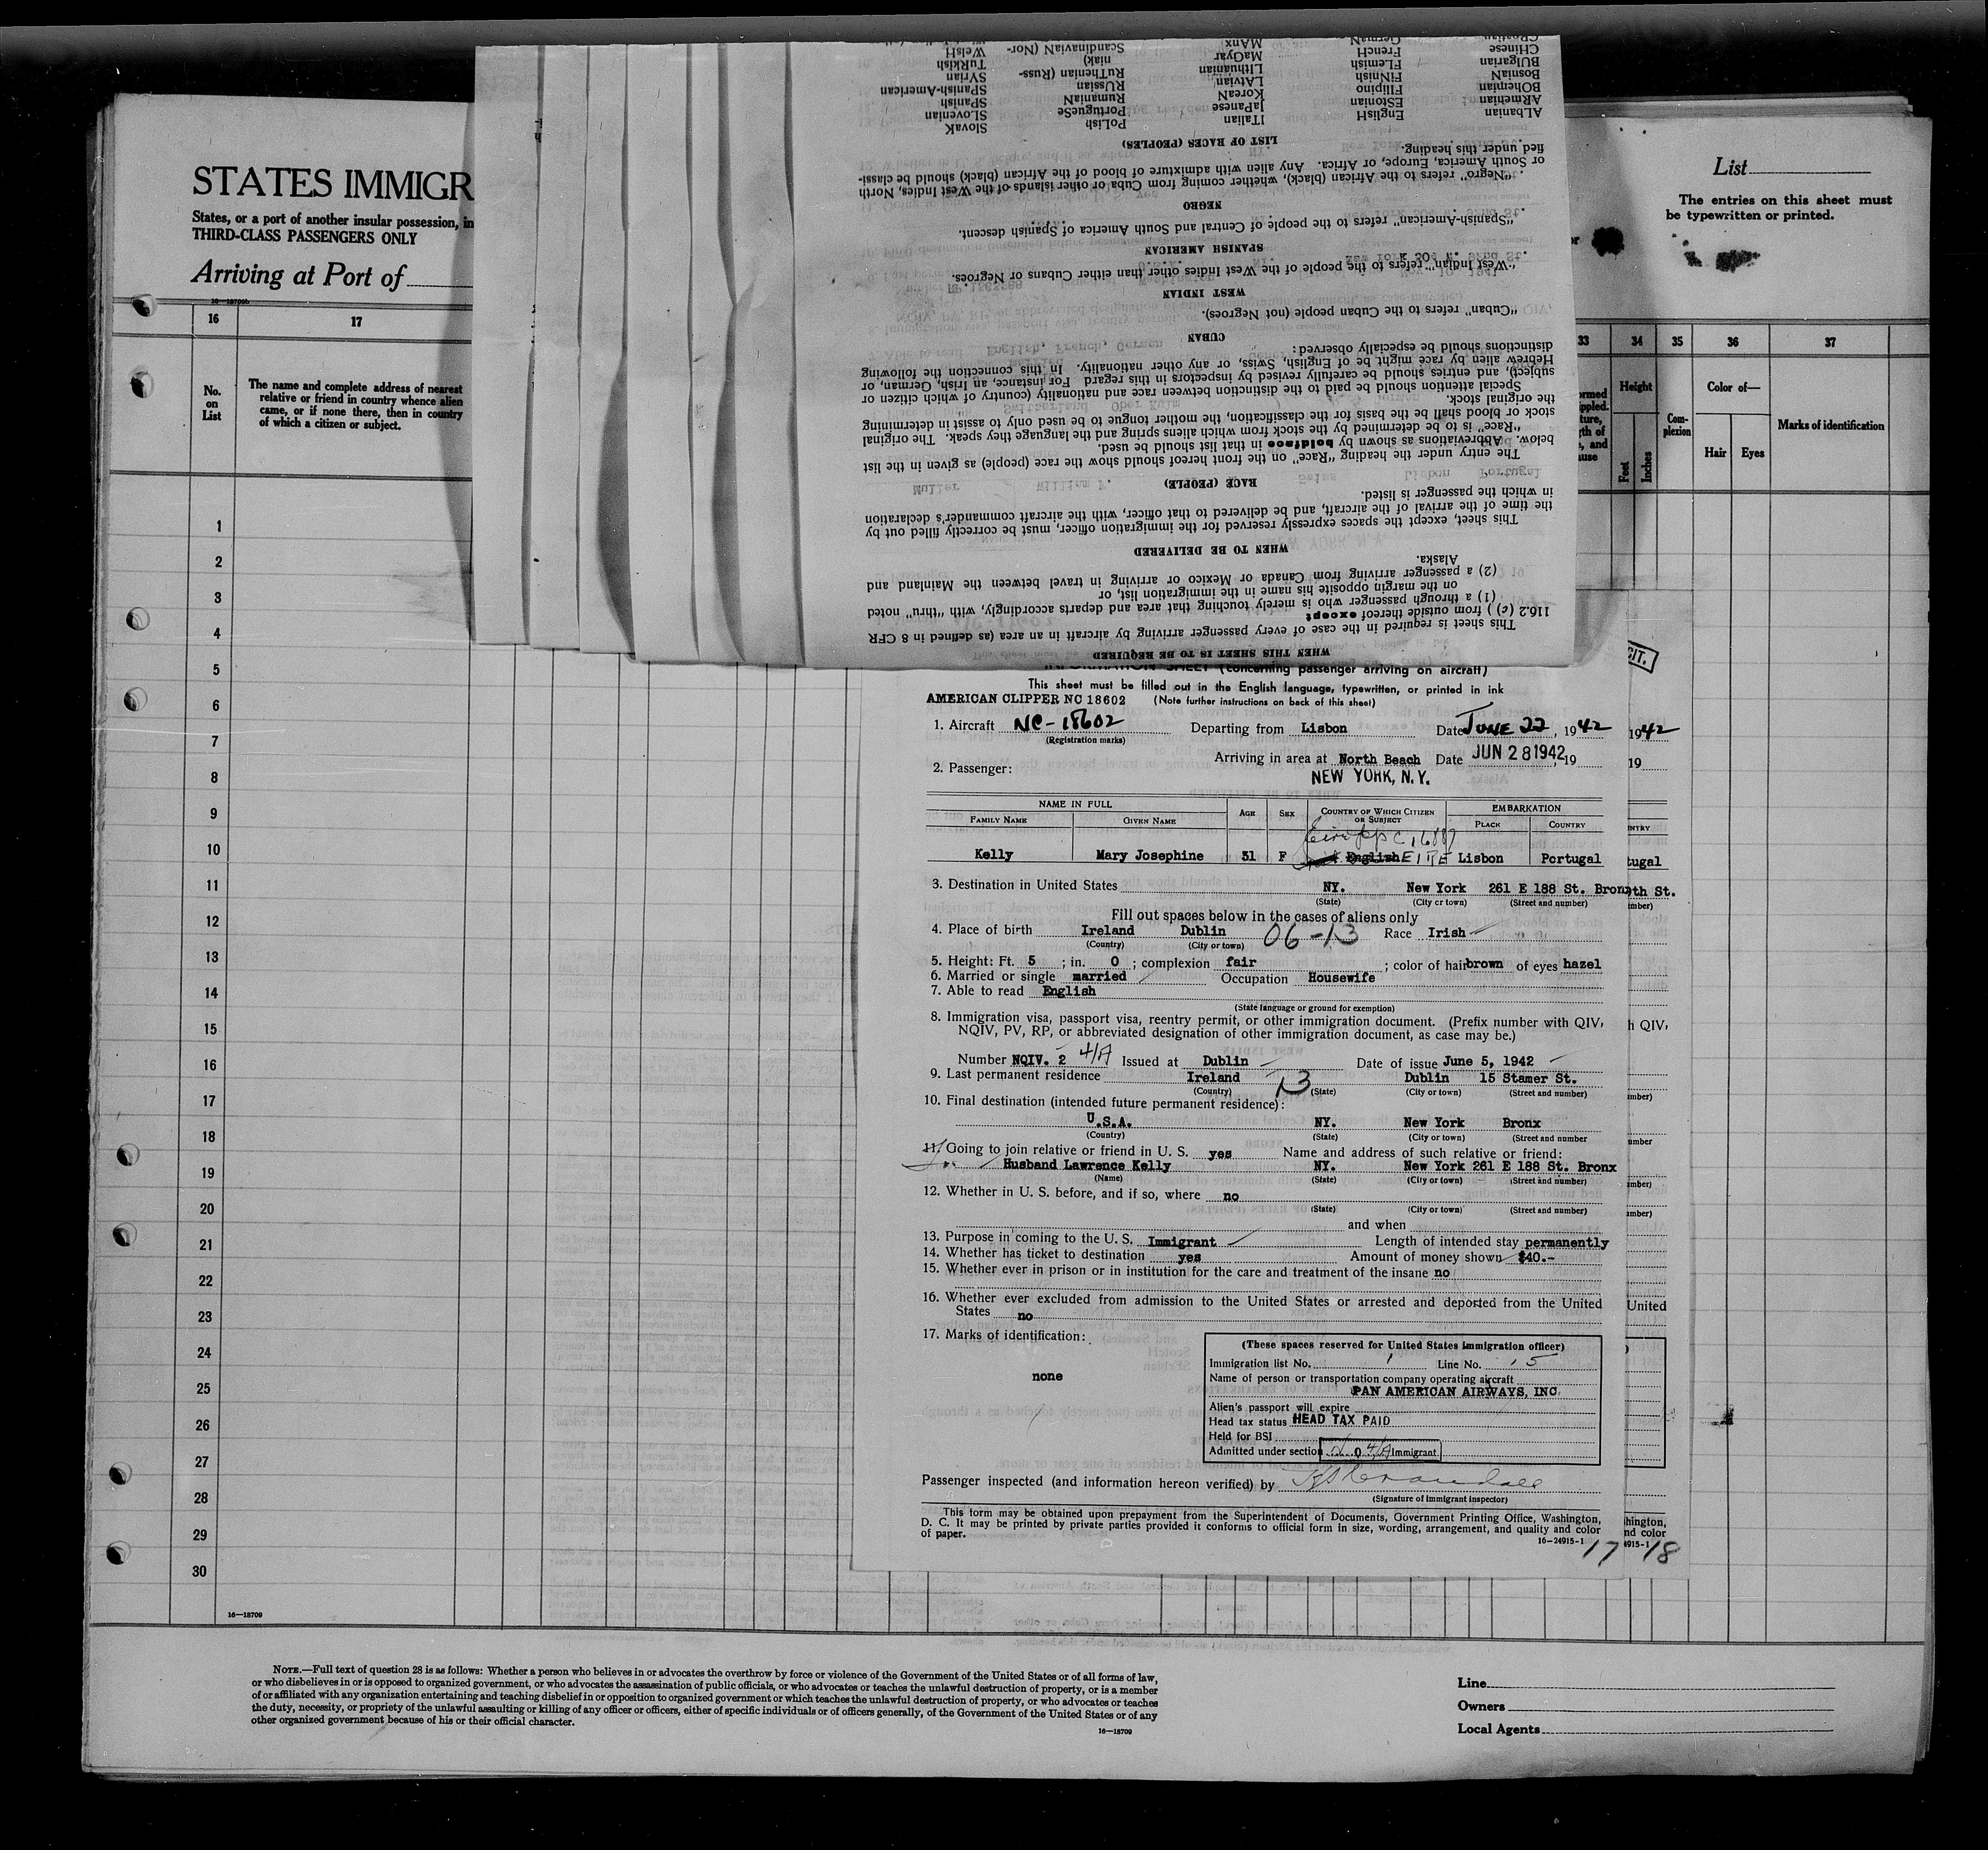 STATES IMMIGR
States, or a port of another insular possession, in
THIRD-CLASS PASSENGERS ONLY
Arriving at Port of
16—18709b
16 17
No. on List
The name and complete address of nearest
relative or friend in country whence alien
came, or if none there, then in country
of which a citizen or subject.
1
2
3
4
5
6
7
8
9
10
11
12
13
14
15
16
17
18
19
20
21
22
23
24
25
26
27
28
29
30
16—18709
List
The entries on this sheet must
be typewritten or printed.
33 34 35 36 37
Height
Feet Inches
Com-
plexion
Color of—
Hair Eyes
Marks of identification
WHEN THIS SHEET IS TO BE REQUIRED
This sheet is required in the case of every passenger arriving by aircraft in an area (as defined in 8 CFR
116.2 (c) ) from outside thereof except
(1) a through passenger who is merely touching that area and departs accordingly, with "thru" noted
on the margin opposite his name in the immigration list, or
(2) a passenger arriving from Canada or Mexico or arriving in travel between the Mainland and
Alaska.
WHEN TO BE DELIVERED
This sheet, except the spaces expressly reserved for the immigration officer, must be correctly filled out by
the time of the arrival of the aircraft, and be delivered to that officer, with the aircraft commander's declaration
in which the passenger is listed.
RACE (PEOPLE)
The entry under the heading "Race" on the front hereof should show the race (people) as given in the list
below. Abbreviations as shown by boldface in that list should be used.
"Race" is to be determined by the stock from which aliens spring and the language they speak. The original
stock or blood shall be the basis for the classification, the mother tongue to be used only to assist in determining
the original stock.
Special attention should be paid to the distinction between race and nationality (country of which citizen or
subject), and entries should be carefully revised by inspectors in this regard For instance, an Irish, German, or
Hebrew alien by race might be of English, Swiss, or any other nationality. In this connection the following
distinctions should be especially observed:
CUBAN
"Cuban" refers to the Cuban people (not Negroes).
WEST INDIAN
"West Indian" refers to the people of the West Indies other than either Cubans or Negroes.
SPANISH AMERICAN
"Spanish-American" refers to the people of Central and South America of Spanish descent.
NEGRO
"Negro" refers to the African (black), whether coming from Cuba or other islands of the West Indies, North
or South America, Europe, or Africa. Any alien with admixture of blood of the African (black) should be classi-
fied under this heading.
LIST OF RACES (PEOPLES)
ALbanian EnglisH ITalian PoLish SlovaK
ARMenian EStonian JaPanese PortugueSe SLovenian
BOhemian FIlipino KoreaN RumaniaN SPanish
BosniaN FiNnish LAtvian RUssian SPanish-American
BUlgarian FLemish LIthuanian RuThenian (Russ- SYrian
CHinese FrencH MaGyar niak) TuRkish
CRoatian GermaN MAnx ScandinaviaN (Nor- WelsH
INFORMATION SHEET (concerning passenger arriving on aircraft)
This sheet must be filled out in the English language, typewritten, or printed in ink
AMERICAN CLIPPER NC 18602 (Note further instructions on back of this sheet)
1. Aircraft NC-18602 Departing from Lisbon Date JUNE 22, 1942
(Registration marks)
Arriving in area at North Beach Date JUN 28 1942, 19
2. Passenger: NEW YORK, N.Y.
NAME IN FULL AGE SEX COUNTRY OF WHICH CITIZEN OR SUBJECT EMBARKATION
FAMILY NAME GIVEN NAME PLACE COUNTRY
Kelly Mary Josephine 31 F English EIRE Lisbon Portugal
3. Destination in United States NY. New York 261 E 188 St. Bron
(State) (City or town) (Street and number)
Fill out spaces below in the cases of aliens only
4. Place of birth Ireland Dublin 06-13 Race Irish
(Country) (City or town)
5. Height: Ft. 5 ; in. 0 ; complexion fair ; color of hair brown of eyes hazel
6. Married or single married Occupation Housewife
7. Able to read English
(State language or ground for exemption)
8. Immigration visa, passport visa, reentry permit, or other immigration document. (Prefix number with QIV,
NQIV, PV, RP, or abbreviated designation of other immigration document, as case may be.)
Number NQIV. 2 4/A Issued at Dublin Date of issue June 5, 1942
9. Last permanent residence Ireland 13 Dublin 15 Stamer St.
(Country) (State) (City or town) (Street and number)
10. Final destination (intended future permanent residence):
U.S.A. NY. New York Bronx
(Country) (State) (City or town) (Street and number
11. Going to join relative or friend in U. S. yes Name and address of such relative or friend:
Husband Lawrence Kelly NY. New York 261 E 188 St. Bronx
(Name) (State) (City or town) (Street and number)
12. Whether in U. S. before, and if so, where no
(State) (City or town) (Street and number)
and when
13. Purpose in coming to the U. S. Immigrant Length of intended stay permanently
14. Whether has ticket to destination yes Amount of money shown $40.-
15. Whether ever in prison or in institution for the care and treatment of the insane no
16. Whether ever excluded from admission to the United States or arrested and deported from the United
States no
17. Marks of identification:
none
(These spaces reserved for United States immigration officer)
Immigration list No. 1 Line No. 15
Name of person or transportation company operating aircraft
PAN AMERICAN AIRWAYS, INC.
Alien's passport will expire
Head tax status HEAD TAX PAID
Held for BSI
Admitted under section 4/A Immigrant
Passenger inspected (and information hereon verified) by
(Signature of immigrant inspector)
This form may be obtained upon prepayment from the Superintendent of Documents, Government Printing Office, Washington,
D. C. It may be printed by private parties provided it conforms to official form in size, wording, arrangement, and quality and color
of paper.
16—24915-1
17 18
NOTE.—Full text of question 28 is as follows: Whether a person who believes in or advocates the overthrow by force or violence of the Government of the United States or of all forms of law,
or who disbelieves in or is opposed to organized government, or who advocates the assassination of public officials, or who advocates or teaches the unlawful destruction of property, or is a member
of or affiliated with any organization entertaining and teaching disbelief in or opposition to organized government or which teaches the unlawful destruction of property, or who advocates or teaches
the duty, necessity, or propriety of the unlawful assaulting or killing of any officer or officers, either of specific individuals or of officers generally, of the Government of the United States or of any
other organized government because of his or their official character.
16—18709
Line
Owners
Local Agents